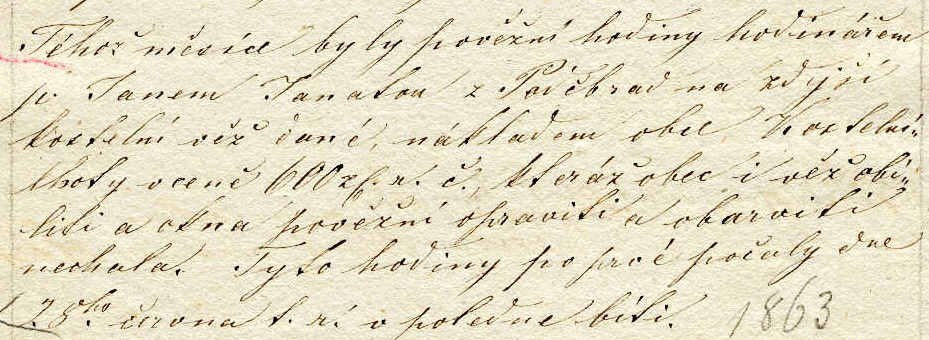 Téhož měsíce byly pověžní hodiny hodinářem
p. Janem Janatou z Poděbrad na zdejší
kostelní věž dané, nákladem obce Kostelní-
lhoty v ceně 600 zl. r. č., kteráž obec i věž obí-
liti a okna pověžní opraviti a obarviti
nechala. Tyto hodiny po prvé počaly dne
28ho června t. r. v poledne bíti. 1863